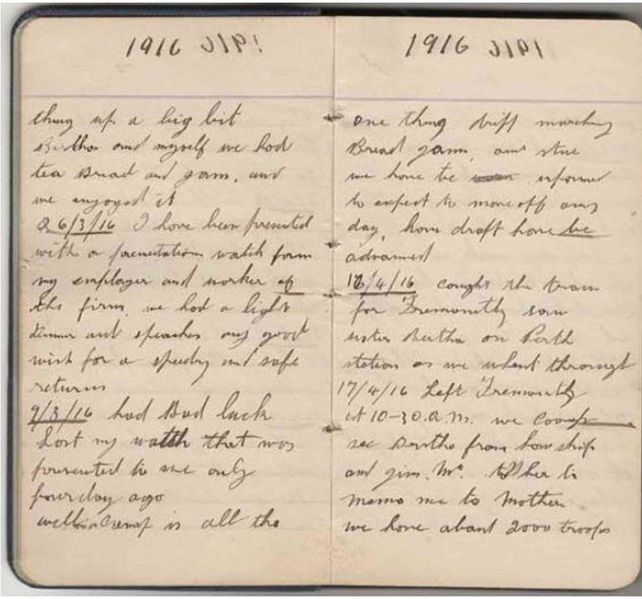 1916
thing up a big bit
Bertha and myself we had
tea Bread and jam, and
we enjoyed it
6/3/16 I have been presented
with a presentation watch form
my employer and worker of
the firm, we had a light
dinner and speaches any good
wish for a speedy and safe
returns
9/3/16 had Bad luck
Lost my watch that was
presented to me only
four day ago
well in Camp is all the
1916
one thing drill marching
Bread jam, and stue
we have be informed
to expect to move off any
day, hour draft have be
advanced
16/4/16 caught the train
for Fremantly saw
sister Bertha on Perth
station as we whent through
17/4/16 Left Fremantly
at 10-30.a.m. we
see Bertha from how ship
and give Mr. to
memo me to Mother
we have about 2000 troops